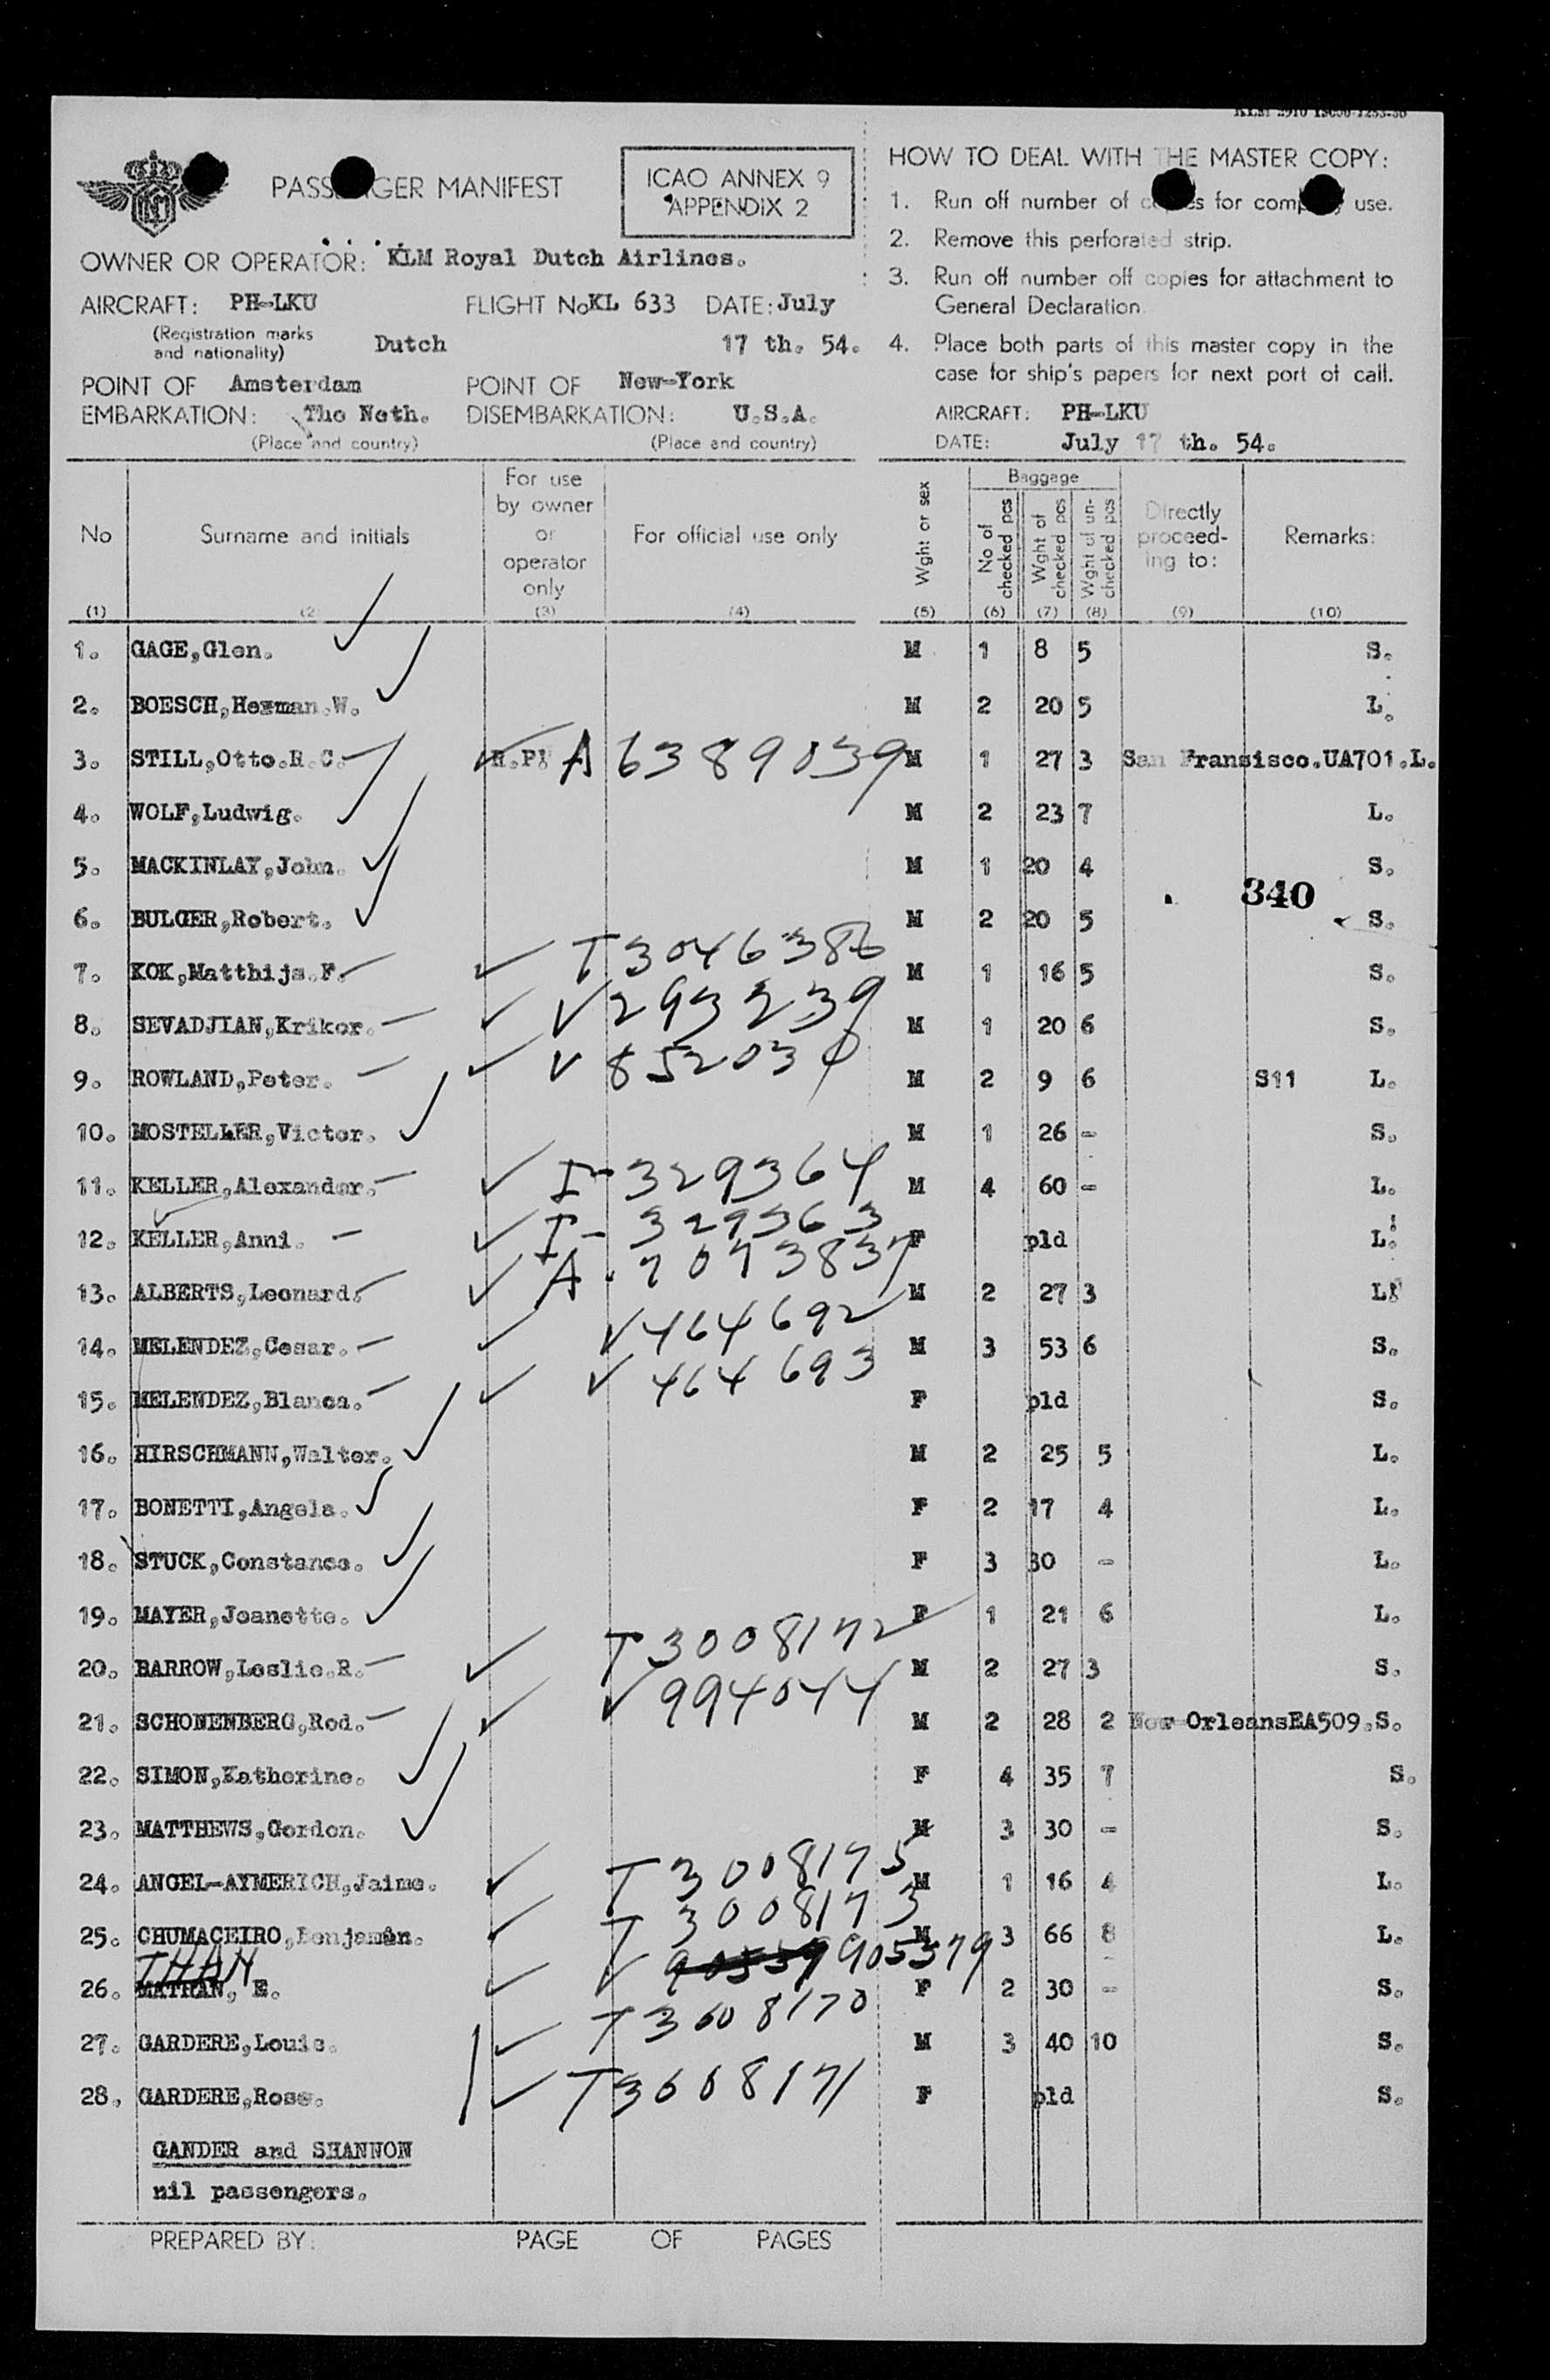 PASSENGER MANIFEST
ICAO ANNEX 9
APPENDIX 2
OWNER OR OPERATOR: KLM Royal Dutch Airlines.
AIRCRAFT: PH-LKU FLIGHT No KL 633 DATE: July
(Registration marks
and nationality) Dutch 17 th. 54.
POINT OF Amsterdam POINT OF New-York
EMBARKATION: The Neth. DISEMBARKATION: U.S.A.
(Place and country) (Place and country)
HOW TO DEAL WITH THE MASTER COPY:
1. Run off number of copies for company use.
2. Remove this perforated strip.
3. Run off number off copies for attachment to
General Declaration.
4. Place both parts of this master copy in the
case for ship's papers for next port of call.
AIRCRAFT: PH-LKU
DATE: July 17 th. 54.
No Surname and initials For use by owner or operator only For official use only Wght or sex Baggage No of checked pcs Wght of checked pcs Wght of un-checked pcs Directly proceed-ing to: Remarks:
(1) (2 (3) (4) (5) (6) (7) (8) (9) (10)
1. GAGE,Glen. M 1 8 5 S.
2. BOESCH,Herman.W. M 2 20 5 L.
3. STILL,Otto.R.C. A 6389039 M 1 27 3 San Fransisco.UA701.L.
4. WOLF,Ludwig. M 2 23 7 L.
5. MACKINLAY,John. M 1 20 4 S.
340
6. BULGER,Robert. M 2 20 5 S.
7. KOK,Matthijs.F. T 3046386 M 1 16 5 S.
8. SEVADJIAN,Krikor. V 293239 M 1 20 6 S.
9. ROWLAND,Peter. V 852030 M 2 9 6 S11 L.
10. MOSTELLER,Victor. M 1 26 - S.
11. KELLER,Alexander. I-329364 M 4 60 - L.
12. KELLER,Anni. I-329363 F pld L.
13. ALBERTS,Leonard. A.7073837 M 2 27 3 L.
14. MELENDEZ,Cesar. V464692 M 3 53 6 S.
15. MELENDEZ,Blanca. V 464693 F pld S.
16. HIRSCHMANN,Walter. M 2 25 5 L.
17. BONETTI,Angela. F 2 17 4 L.
18. STUCK,Constance. F 3 30 - L.
19. MAYER,Jeanette. F 1 21 6 L.
20. BARROW,Leslie.R. T 3008172 M 2 27 3 S.
21. SCHONENBERG,Rod. V 994044 M 2 28 2 New OrleansEA509.S.
22. SIMON,Katherine. F 4 35 7 S.
23. MATTHEWS,Gordon. M 3 30 - S.
24. ANGEL-AYMERICH,Jaime. T 3008175 M 1 16 4 L.
25. CHUMACEIRO,Benjamin. T 3008173 M 3 66 8 L.
THAN
26. MATHAN, E. V 905379 F 2 30 - S.
27. GARDERE,Louis. T3008170 M 3 40 10 S.
28. GARDERE,Rose. T3008171 F pld S.
GANDER and SHANNON
nil passengers.
PREPARED BY: PAGE OF PAGES